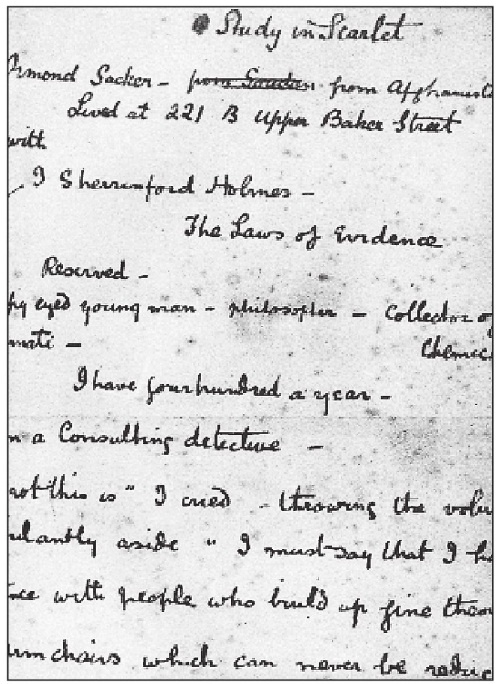 Study in Scarlet
rmond Sacker - from Soudan from Afghanista
Lived at 221 B Upper Baker Street
with
I Sherrinford Holmes -
The Laws of Evidence
Reserved -
py eyed young man - philosopher - Collector of
Chemic
I have four hundred a year -
a Consulting detective -
rot this is" I cried - throwing the volu
ulantly aside " I must say that I ha
nce with people who build up fine theor
rmchairs which can never be reduc